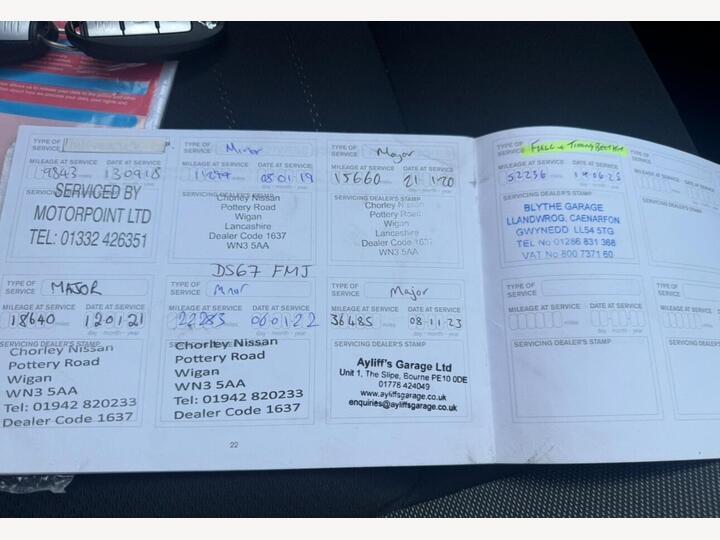 TYPE OF SERVICE
MILEAGE AT SERVICE DATE AT SERVICE
9843 miles 13 09 18
day month year
SERVICING DEALER'S STAMP
SERVICED BY
MOTORPOINT LTD
TEL: 01332 426351
TYPE OF SERVICE Minor
MILEAGE AT SERVICE DATE AT SERVICE
08 01 19
SERVICING DEALER'S STAMP
Chorley Nissan
Pottery Road
Wigan
Lancashire
Dealer Code 1637
WN3 5AA
TYPE OF SERVICE Major
MILEAGE AT SERVICE DATE AT SERVICE
15660 miles 21 1 20
day month year
SERVICING DEALER'S STAMP
Chorley Nissan
Pottery Road
Wigan
Lancashire
Dealer Code 1637
WN3 5AA
DS67 FMJ
TYPE OF SERVICE MAJOR
MILEAGE AT SERVICE DATE AT SERVICE
18640 miles 12 01 21
day month year
SERVICING DEALER'S STAMP
Chorley Nissan
Pottery Road
Wigan
WN3 5AA
Tel: 01942 820233
Dealer Code 1637
TYPE OF SERVICE Minor
MILEAGE AT SERVICE DATE AT SERVICE
22283 miles 06 01 22
day month year
SERVICING DEALER'S STAMP
Chorley Nissan
Pottery Road
Wigan
WN3 5AA
Tel: 01942 820233
Dealer Code 1637
TYPE OF SERVICE Major
MILEAGE AT SERVICE DATE AT SERVICE
36485 miles 08 11 23
day month year
SERVICING DEALER'S STAMP
Ayliff's Garage Ltd
Unit 1, The Slipe, Bourne PE10 0DE
01778 424049
www.ayliffsgarage.co.uk
enquiries@ayliffsgarage.co.uk
22
TYPE OF SERVICE FULL + Timing Belt Kit
MILEAGE AT SERVICE DATE AT SERVICE
52236 miles
day month year
SERVICING DEALER'S STAMP
BLYTHE GARAGE
LLANDWROG, CAERNARFON
GWYNEDD LL54 5TG
TEL No 01286 831 388
VAT No 800 7371 60
TYPE OF SERVICE
MILEAGE AT SERVICE
SERVICING DEALER'S
TYPE OF SERVICE
MILEAGE AT SERVICE DATE AT SERVICE
miles
day month year
SERVICING DEALER'S STAMP
TYPE OF SERVICE
MILEAGE AT
SERVICING